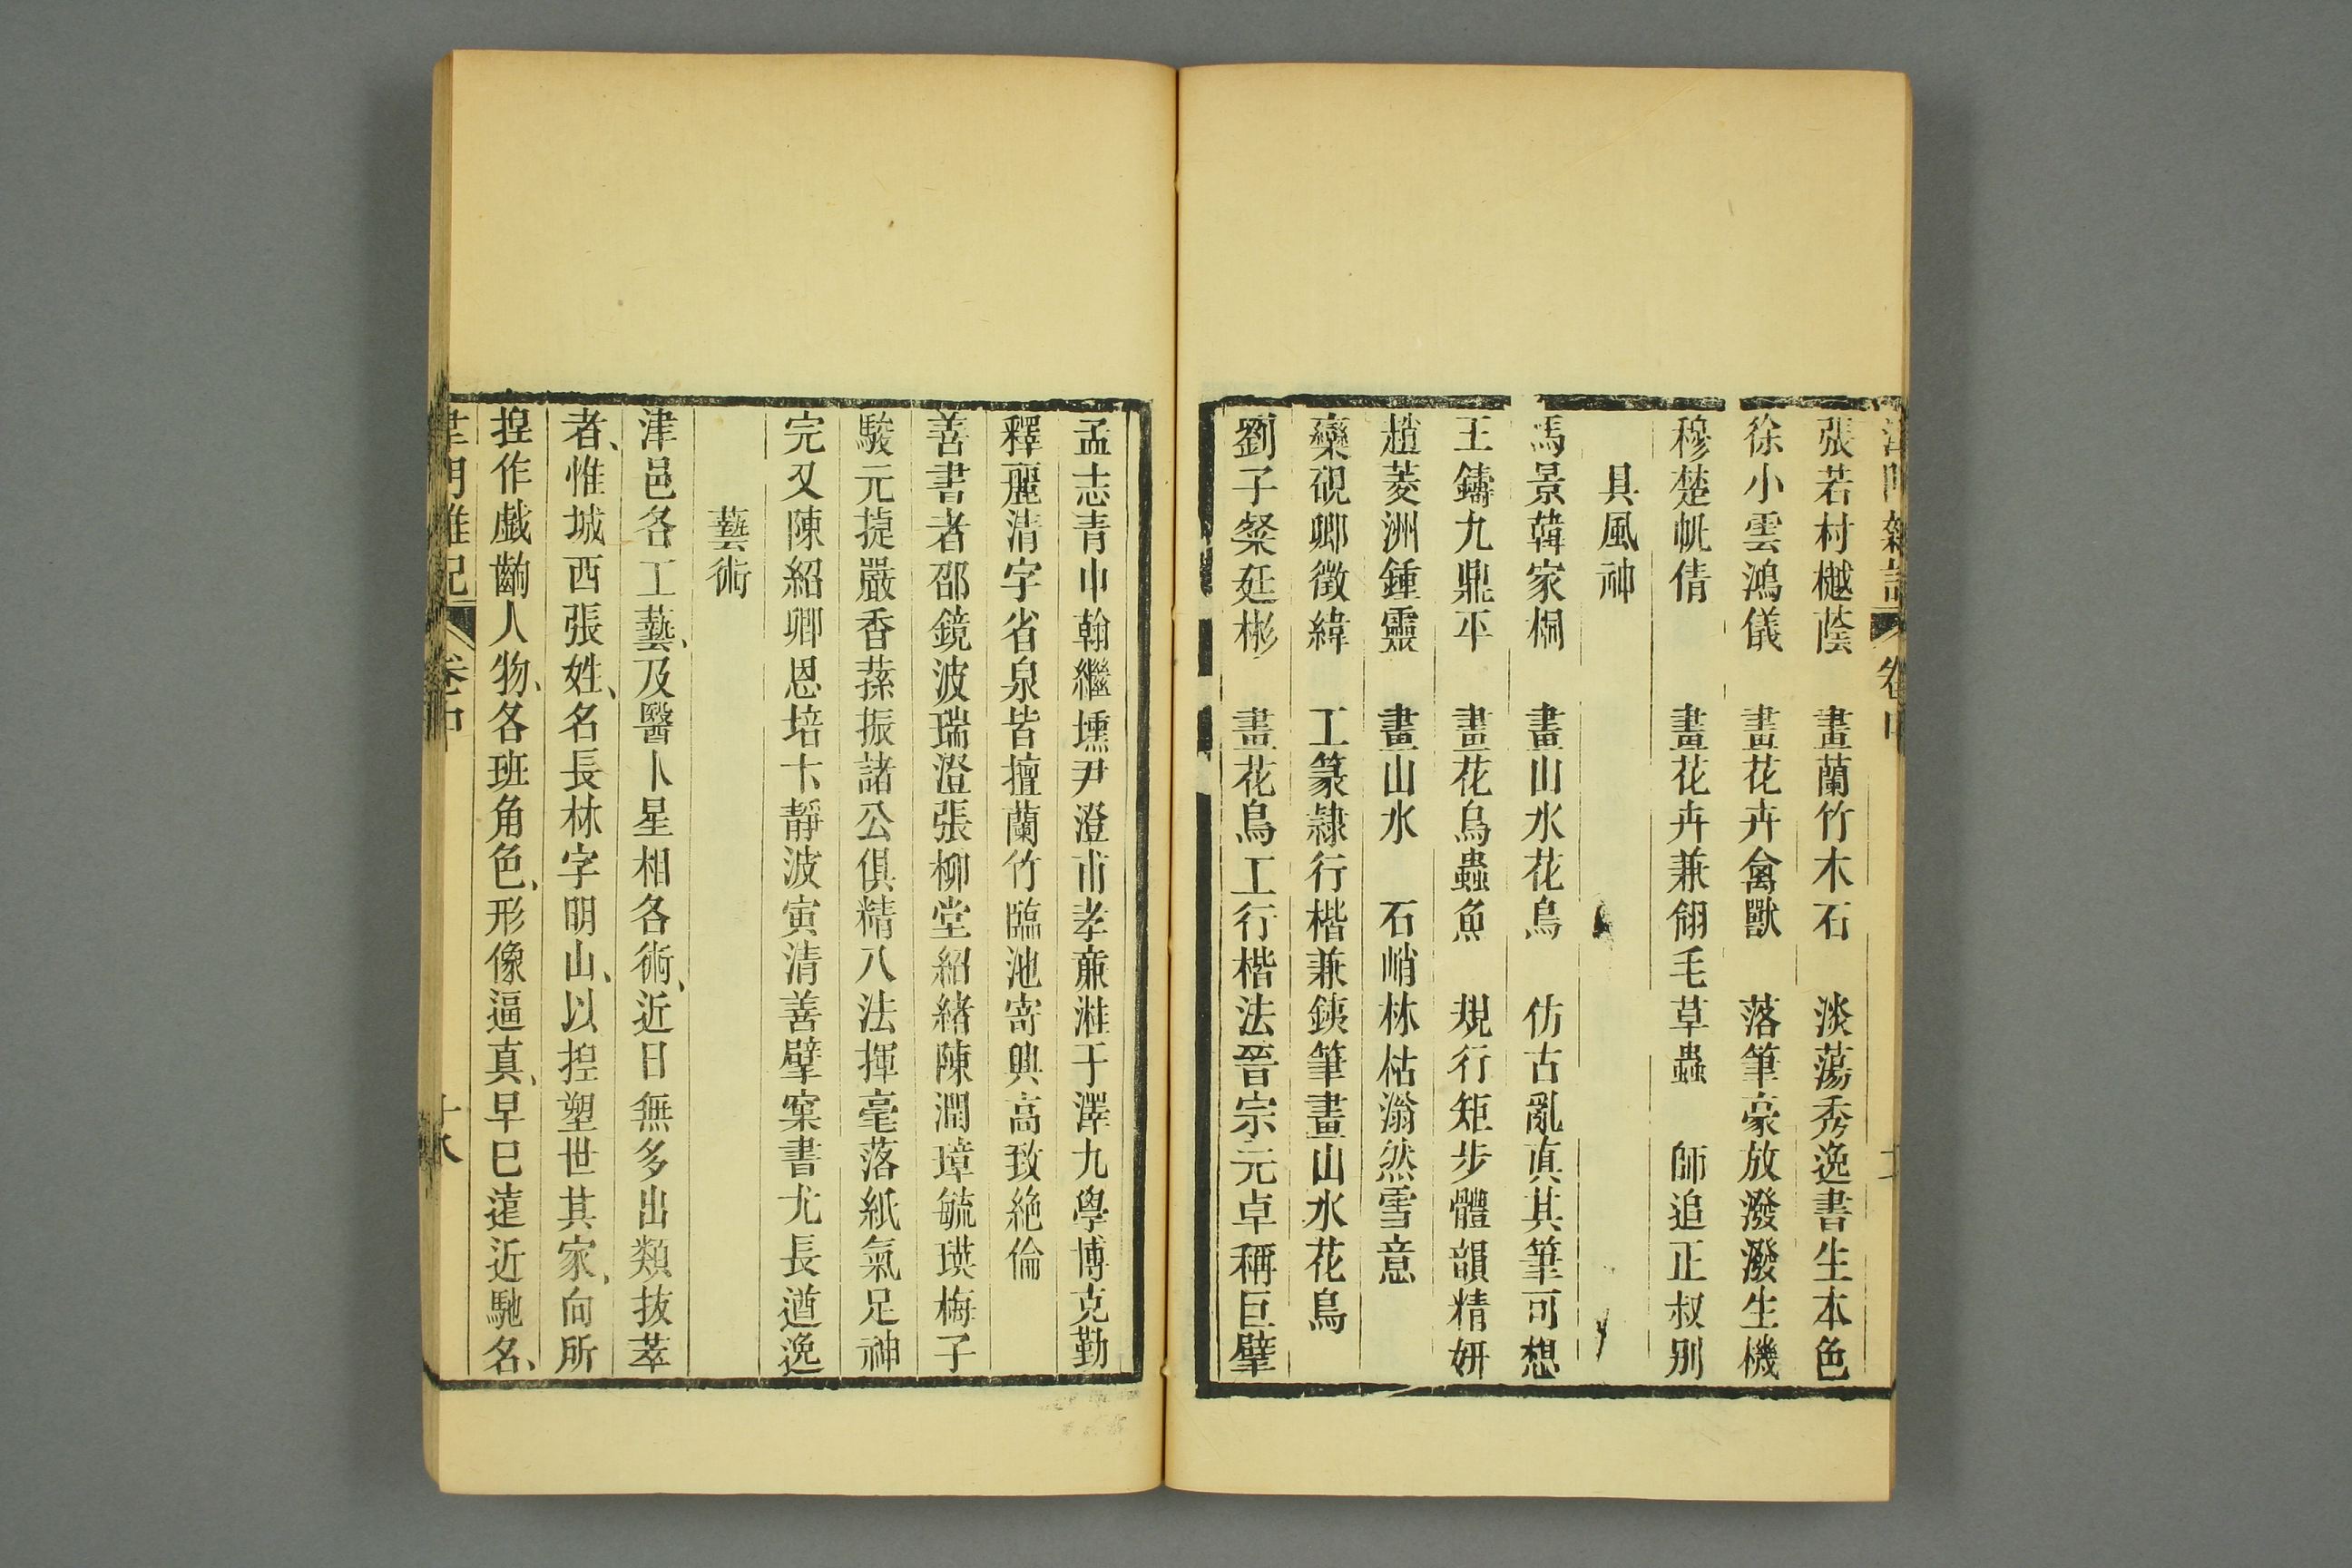 張若村樾蔭　畫蘭竹木石　淡蕩秀逸書生本色
徐小雲鴻儀　畫花卉禽獸　落筆豪放潑潑生機
穆楚帆倩　　畫花卉兼翎毛草蟲　師追正叔别
具風神
馮景韓家桐　畫山水花鳥　仿古亂真其筆可想
王鑄九鼎平　畫花鳥蟲魚　規行矩步體韻精妍
趙菱洲鍾靈　畫山水　石峭林枯滃然雪意
欒硯卿徵緯　工篆隷行楷兼鐵筆畫山水花鳥
劉子粲廷彬　畫花鳥工行楷法晉宗元卓稱巨擘
孟志青巾翰繼壎尹澄甫孝亷溎于澤九學博克勤
釋麗清字省泉皆擅蘭竹臨池寄興高致絶倫
善書者邵鏡波瑞澄張柳堂紹緒陳潤璋毓瑛梅子
駿元㨗嚴香蓀振諸公俱精八法揮毫落紙氣足神
完又陳紹卿恩培卞靜波寅清善擘窠書尤長遒逸
藝術
津邑各工藝、及醫卜星相各術、近日無多出類拔萃
者、惟城西張姓、名長林字明山、以揑塑世其家、向所
揑作戲齣人物、各班角色、形像逼真、早已遠近馳名、
卷中